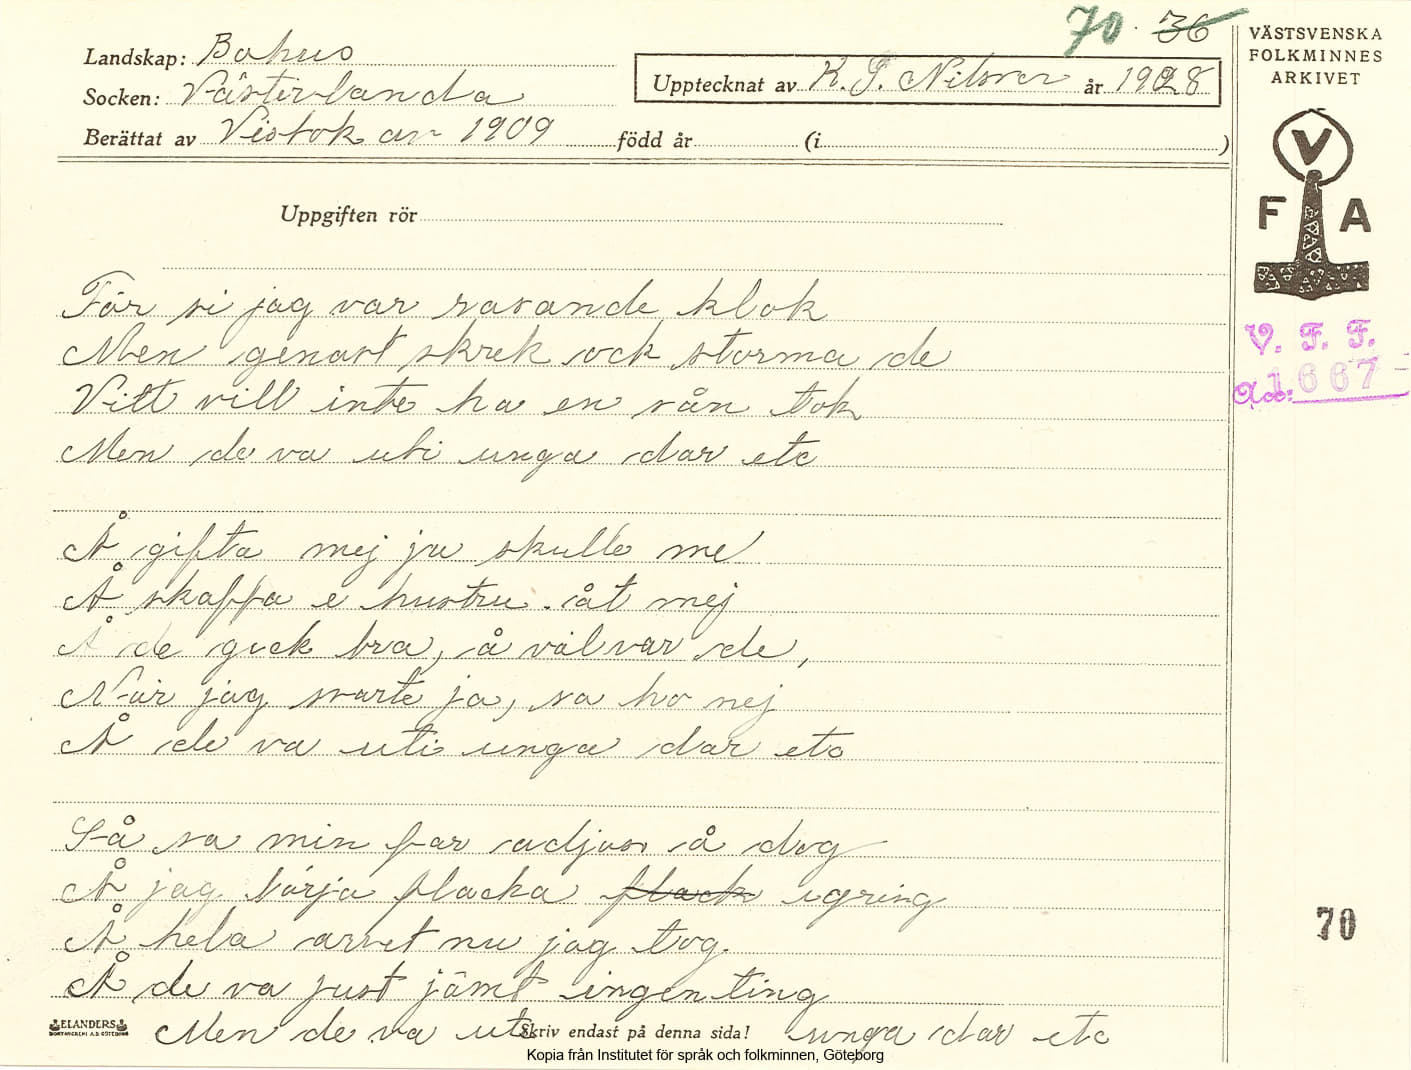 70 36
Landskap: Bohus
Socken: Västerlanda
Berättat av Visbok an 1909 född år (i )
Upptecknat av K. G. Nilsson år 1928
VÄSTSVENSKA
FOLKMINNES
ARKIVET
V
F A
V. F. F.
Acc: 1667
Uppgiften rör
För si jag var rasande klok
Men genast skrek ock storma de
Vitt vill inte ha en sån tok
Men de va uti unga dar etc
Å gifta mej ja skulle me
Å skaffa e hustru åt mej
Å de gick bra, å väl var de,
När jag svarte ja, sa ho nej
Å de va uti unga dar etc
Så sa min far adjös å dog
Å jag börja flacka flack igring
Å hela arvet nu jag tog.
Å de va just jämt ingenting
Men de va uti unga dar etc
70
ELANDERS
Skriv endast på denna sida!
Kopia från Institutet för språk och folkminnen, Göteborg